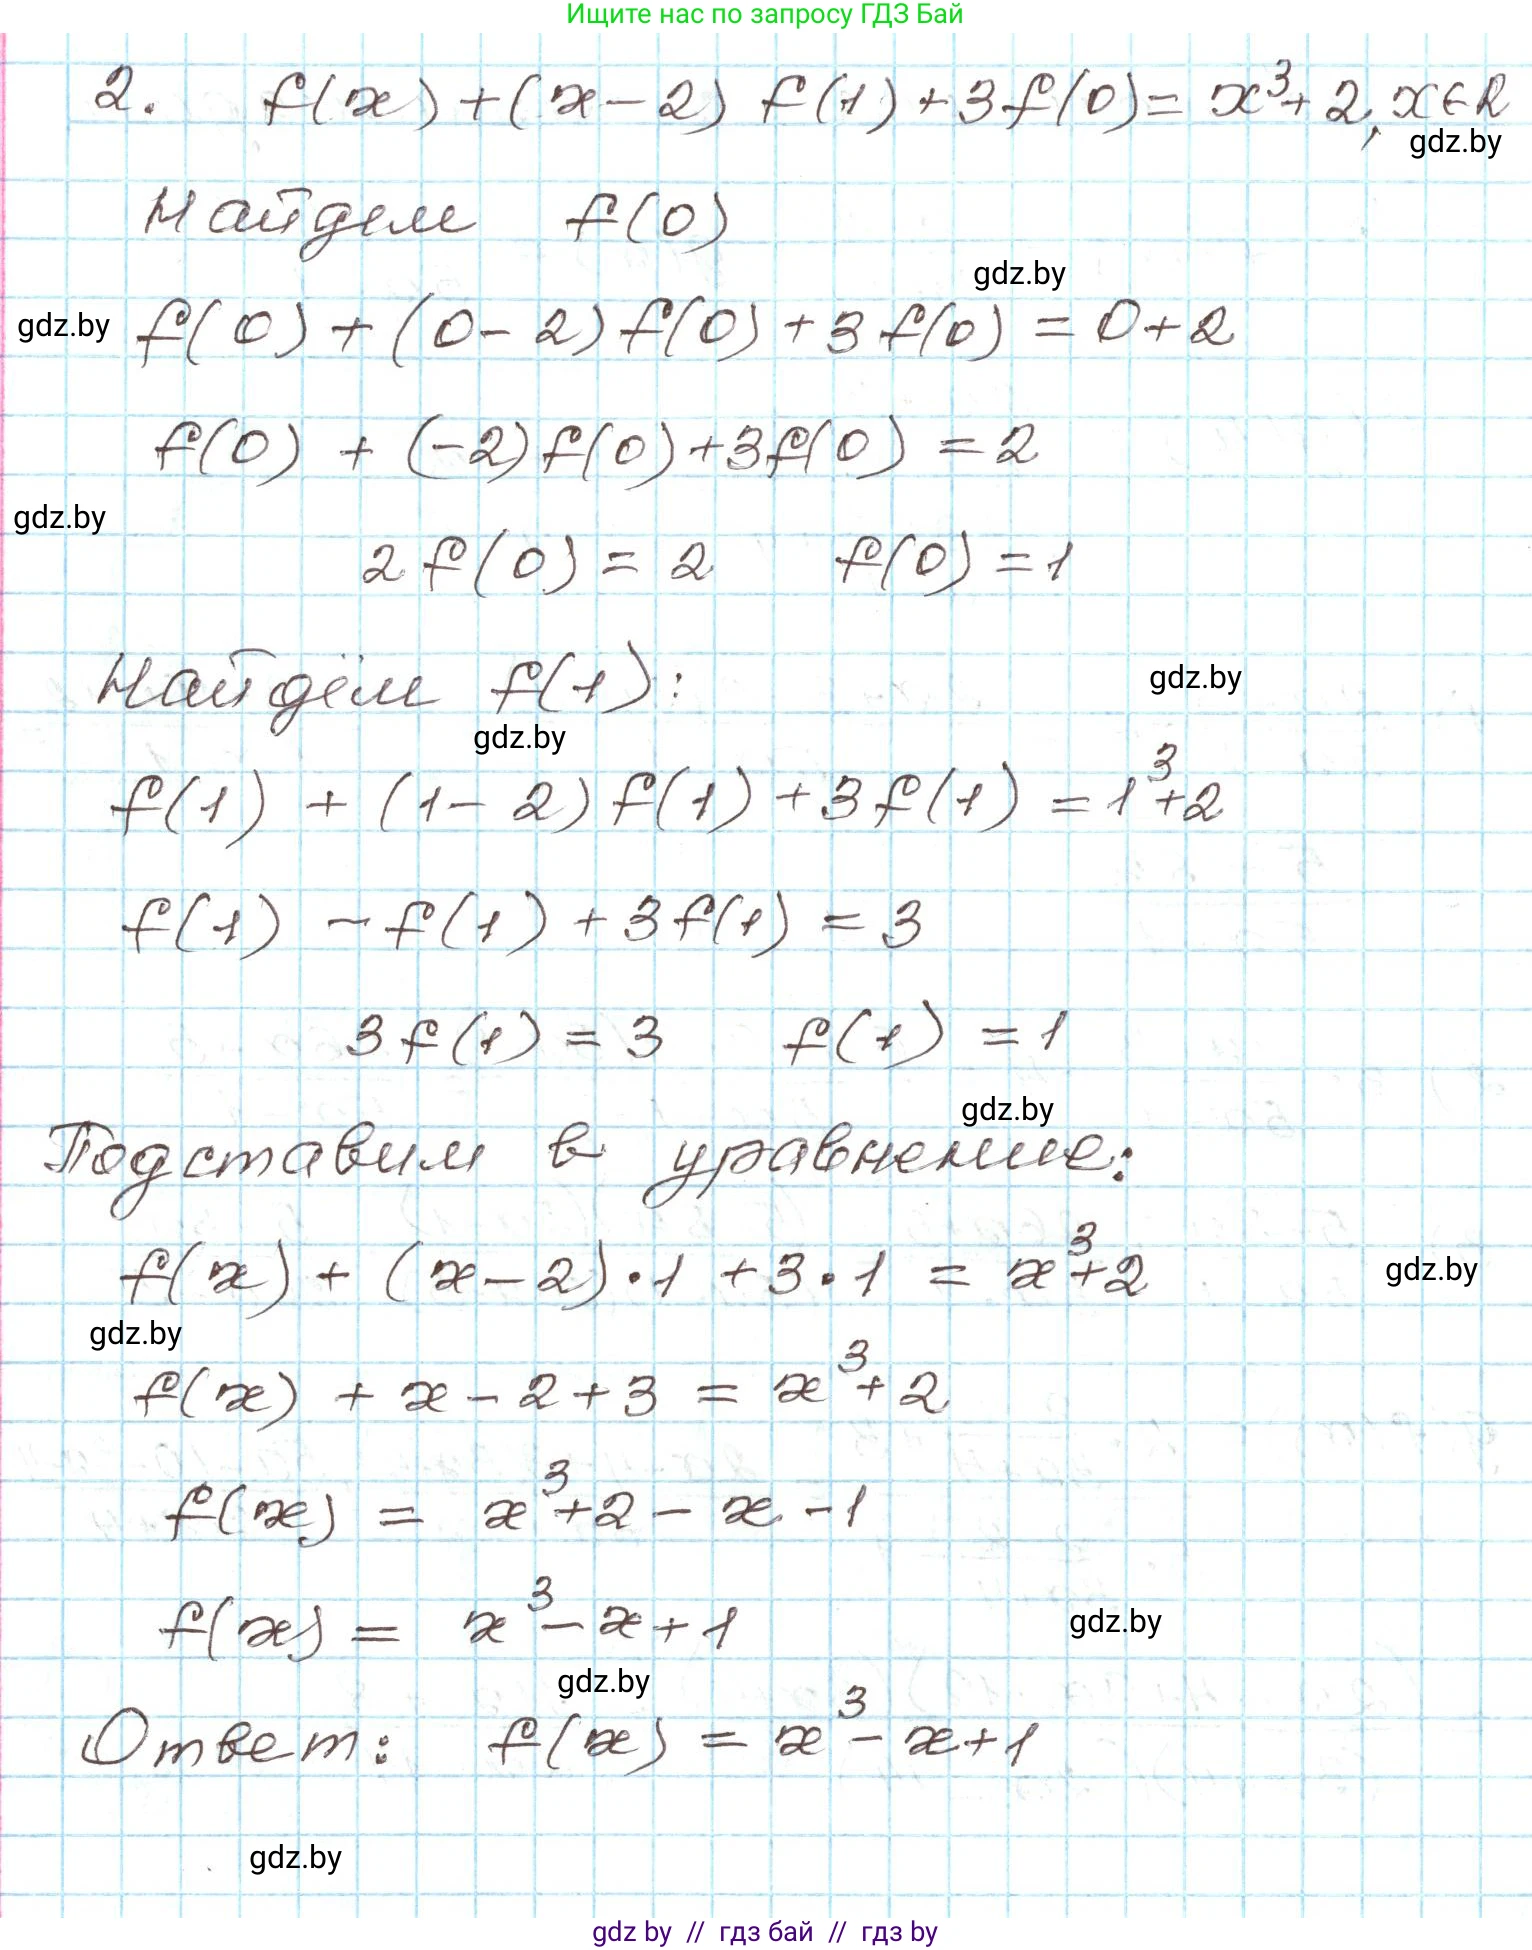 Ищите нас по запросу ГДЗ Бай
2. f(x) + (x - 2) f(1) + 3f(0) = x³ + 2, x ∈ R
gdz.by
Найдем f(0)
gdz.by
gdz.by f(0) + (0 - 2) f(0) + 3f(0) = 0 + 2
f(0) + (-2) f(0) + 3f(0) = 2
gdz.by
2f(0) = 2 f(0) = 1
Найдём f(1):
gdz.by
gdz.by
f(1) + (1 - 2) f(1) + 3f(1) = 1³ + 2
f(1) - f(1) + 3f(1) = 3
3f(1) = 3 f(1) = 1
gdz.by
Подставим в уравнение:
f(x) + (x - 2) · 1 + 3 · 1 = x³ + 2
gdz.by
gdz.by
f(x) + x - 2 + 3 = x³ + 2
f(x) = x³ + 2 - x - 1
f(x) = x³ - x + 1
gdz.by
gdz.by
Ответ: f(x) = x³ - x + 1
gdz.by
gdz by // гдз бай // гдз by